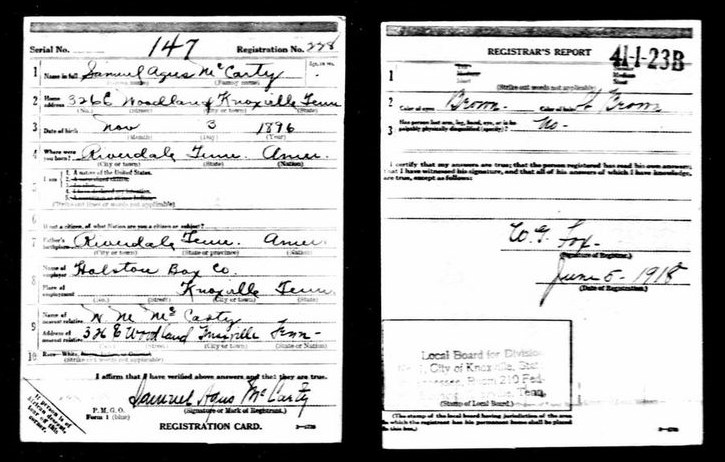 Serial No. 147 Registration No. 228
1 Name in full Samuel Agus McCarty
(Family name)
2 Home address 326 E Woodland Knoxville Tenn
(No.) (Street) (City or town) (State)
3 Date of birth Nov 3 1896
(Month) (Day) (Year)
4 Where were you born? Riverdale Tenn. Amer.
(City or town) (State) (Nation)
5 I am 1. A native of the United States.
(Strike out lines or words not applicable)
6 If not a citizen, of what Nation are you a citizen or subject?
7 Father's birthplace Riverdale Tenn. Amer.
(City or town) (State or province) (Nation)
8 Name of employer Holston Box Co.
Place of employment Knoxville Tenn
(No.) (Street) (City or town) (State)
9 Name of nearest relative N M McCarty
Address of nearest relative 326 E Woodland Knoxville Tenn
(No.) (Street) (City or town) (State or Nation)
10 Race- White,
(Strike out words not applicable)
I affirm that I have verified above answers and that they are true.
P. M. G. O.
Form 1 (blue)
Samuel Agus McCarty
(Signature or Mark of Registrant.)
REGISTRATION CARD.
If person is of
African descent,
tear off this
corner.
REGISTRAR'S REPORT
41-1-23B
1
(Strike out words not applicable)
2 Color of eyes Brown Color of hair Brown
3 Has person lost arm, leg, hand, eye, or is he
palpably physically disqualified (specify)? No-
I certify that my answers are true; that the person registered has read his own answers;
that I have witnessed his signature, and that all of his answers of which I have knowledge,
are true, except as follows:
W. T. Fox
(Signature of Registrar.)
June 5-1918
(Date of Registration.)
Local Board for Division
City of Knoxville,
Room 210 Fed-
Tenn.
(Stamp of Local Board.)
(The stamp of the local board having jurisdiction of the area
in which the registrant has his permanent home shall be placed
in this box.)